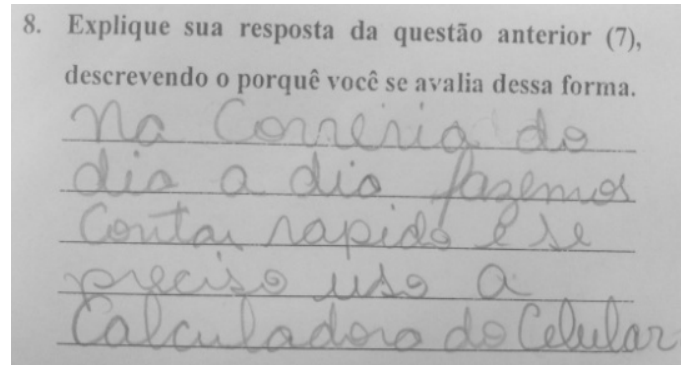 8. Explique sua resposta da questão anterior (7),
descrevendo o porquê você se avalia dessa forma.
Na Correria do
dia a dia fazemos
Contas rapido e se
preciso uso a
Calculadora do Celular